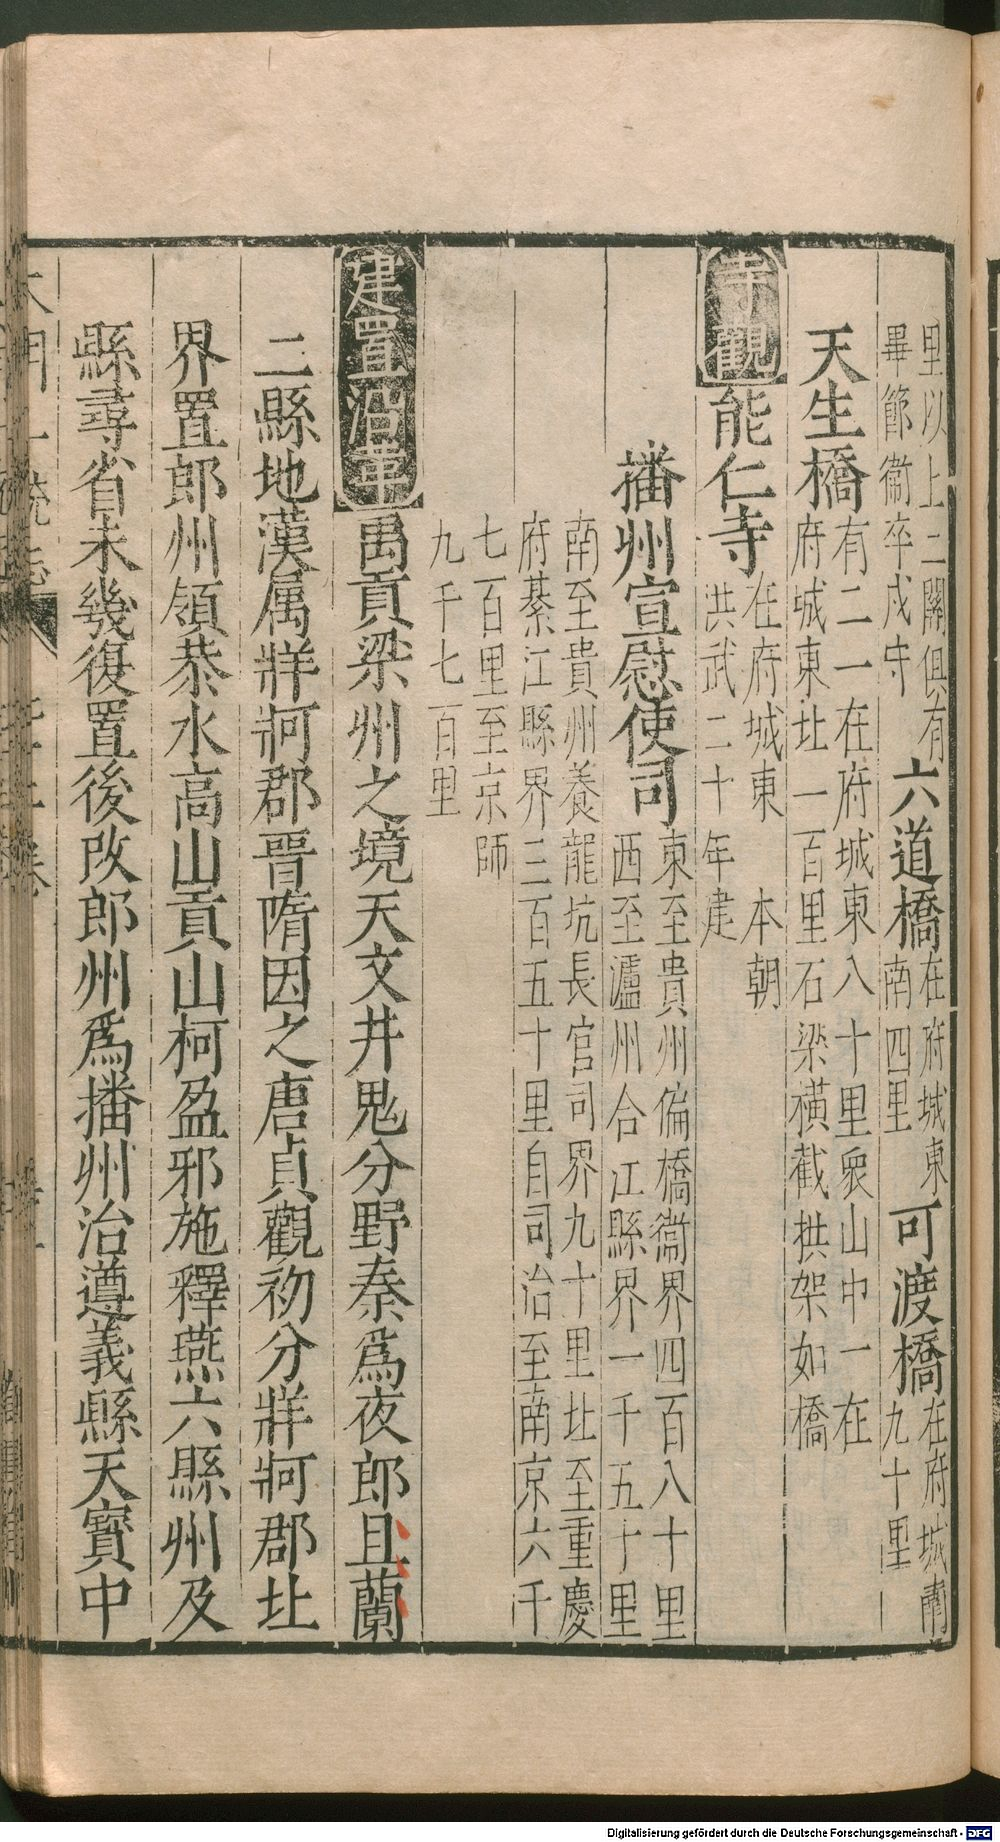 里以上二關俱有
畢節衞卒戍守
六道橋
在府城東
南四里
可渡橋
在府城南
九十里
天生橋
有二一在府城東八十里衆山中一在
府城東北一百里石梁橫截拱架如橋
寺觀
能仁寺
在府城東 本朝
洪武二十年建
播州宣慰使司
東至貴州偏橋衞界四百八十里
西至瀘州合江縣界一千五十里
南至貴州養龍坑長官司界九十里北至重慶
府綦江縣界三百五十里自司治至南京六千
七百里至京師
九千七百里
建置沿革
禹貢梁州之境天文井鬼分野秦爲夜郎且蘭
二縣地漢属牂牁郡晉隋因之唐貞觀初分牂牁郡北
界置郎州領恭水高山貢山柯盈邪施釋燕六縣州及
縣尋省未幾復置後改郎州爲播州治遵義縣天寳中
Digitalisierung gefördert durch die Deutsche Forschungsgemeinschaft - DFG